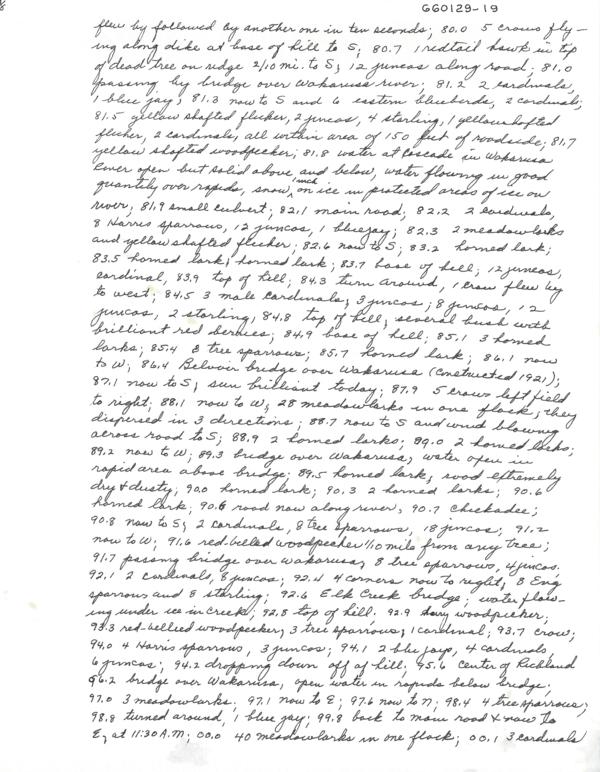 660129-19
flew by followed by another one in ten seconds; 80.0 5 crows fly-
ing along dike at base of hill to S; 80.7 1 redtail hawk in top
of dead tree on ridge 2/10 mi. to S; 12 juncos along road; 81.0
passing by bridge over Wakarusa river; 81.2 2 cardinals,
1 blue jay; 81.3 now to S and 6 eastern bluebirds, 2 cardinals;
81.5 yellow shafted flicker, 2 juncos, 4 starling, 1 yellowshafted
flicker, 2 cardinals, all within area of 150 feet of roadside; 81.7
yellow shafted woodpecker; 81.8 water at cascade in Wakarusa
River open but solid above and below, water flowing in good
quantity over rapids, snow 1 inch on ice in protected areas of ice on
river; 81.9 small culvert; 82.1 main road; 82.2 2 cardinals,
8 Harris sparrows, 12 juncos, 1 bluejay; 82.3 2 meadowlarks
and yellow shafted flicker; 82.6 now to S; 83.2 horned lark;
83.5 horned lark; horned lark; 83.7 base of hill; 12 juncos,
cardinal, 83.9 top of hill; 84.3 turn around, 1 crow flew by
to west; 84.5 3 male cardinals; 3 juncos; 8 juncos, 12
juncos, 2 starling; 84.8 top of hill; several bush with
brilliant red berries; 84.9 base of hill; 85.1 3 horned
larks; 85.4 8 tree sparrows; 85.7 horned lark; 86.1 now
to W; 86.4 Belvoir bridge over Wakarusa (constructed 1921);
87.1 now to S; sun brilliant today; 87.9 5 crows left field
to right; 88.1 now to W; 28 meadowlarks in one flock; they
dispersed in 3 directions; 88.7 now to S and wind blowing
across road to S; 88.9 2 horned larks; 89.0 2 horned larks;
89.2 now to W; 89.3 bridge over Wakarusa; water open in
rapid area above bridge; 89.5 horned lark; road extremely
dry & dusty; 90.0 horned lark; 90.3 2 horned larks; 90.6
horned lark; 90.6 road now along river; 90.7 chickadee;
90.8 now to S; 2 cardinals, 8 tree sparrows, 18 juncos; 91.2
now to W; 91.6 red-bellied woodpecker 1/10 mile from any tree;
91.7 passing bridge over Wakarusa; 8 tree sparrows, 4 juncos.
92.1 2 cardinals, 8 juncos; 92.4 4 corners now to right; 8 Eng
sparrows and 8 starling; 92.6 Elk Creek bridge; water flow-
ing under ice in creek; 92.8 top of hill; 92.9 woodpecker;
93.3 red-bellied woodpecker, 3 tree sparrows, 1 cardinal; 93.7 crow;
94.0 4 Harris sparrow, 3 juncos; 94.1 2 blue jays, 4 cardinals,
6 juncos; 94.2 dropping down off of hill; 95.6 center of Richland
96.2 bridge over Wakarusa, open water in rapids below bridge;
97.0 3 meadowlarks. 97.1 now to E; 97.6 now to N; 98.4 4 tree sparrows;
98.8 turned around, 1 blue jay; 99.8 back to main road & now to
E, at 11:30 A.M; 00.0 40 meadowlarks in one flock; 00.1 3 cardinals